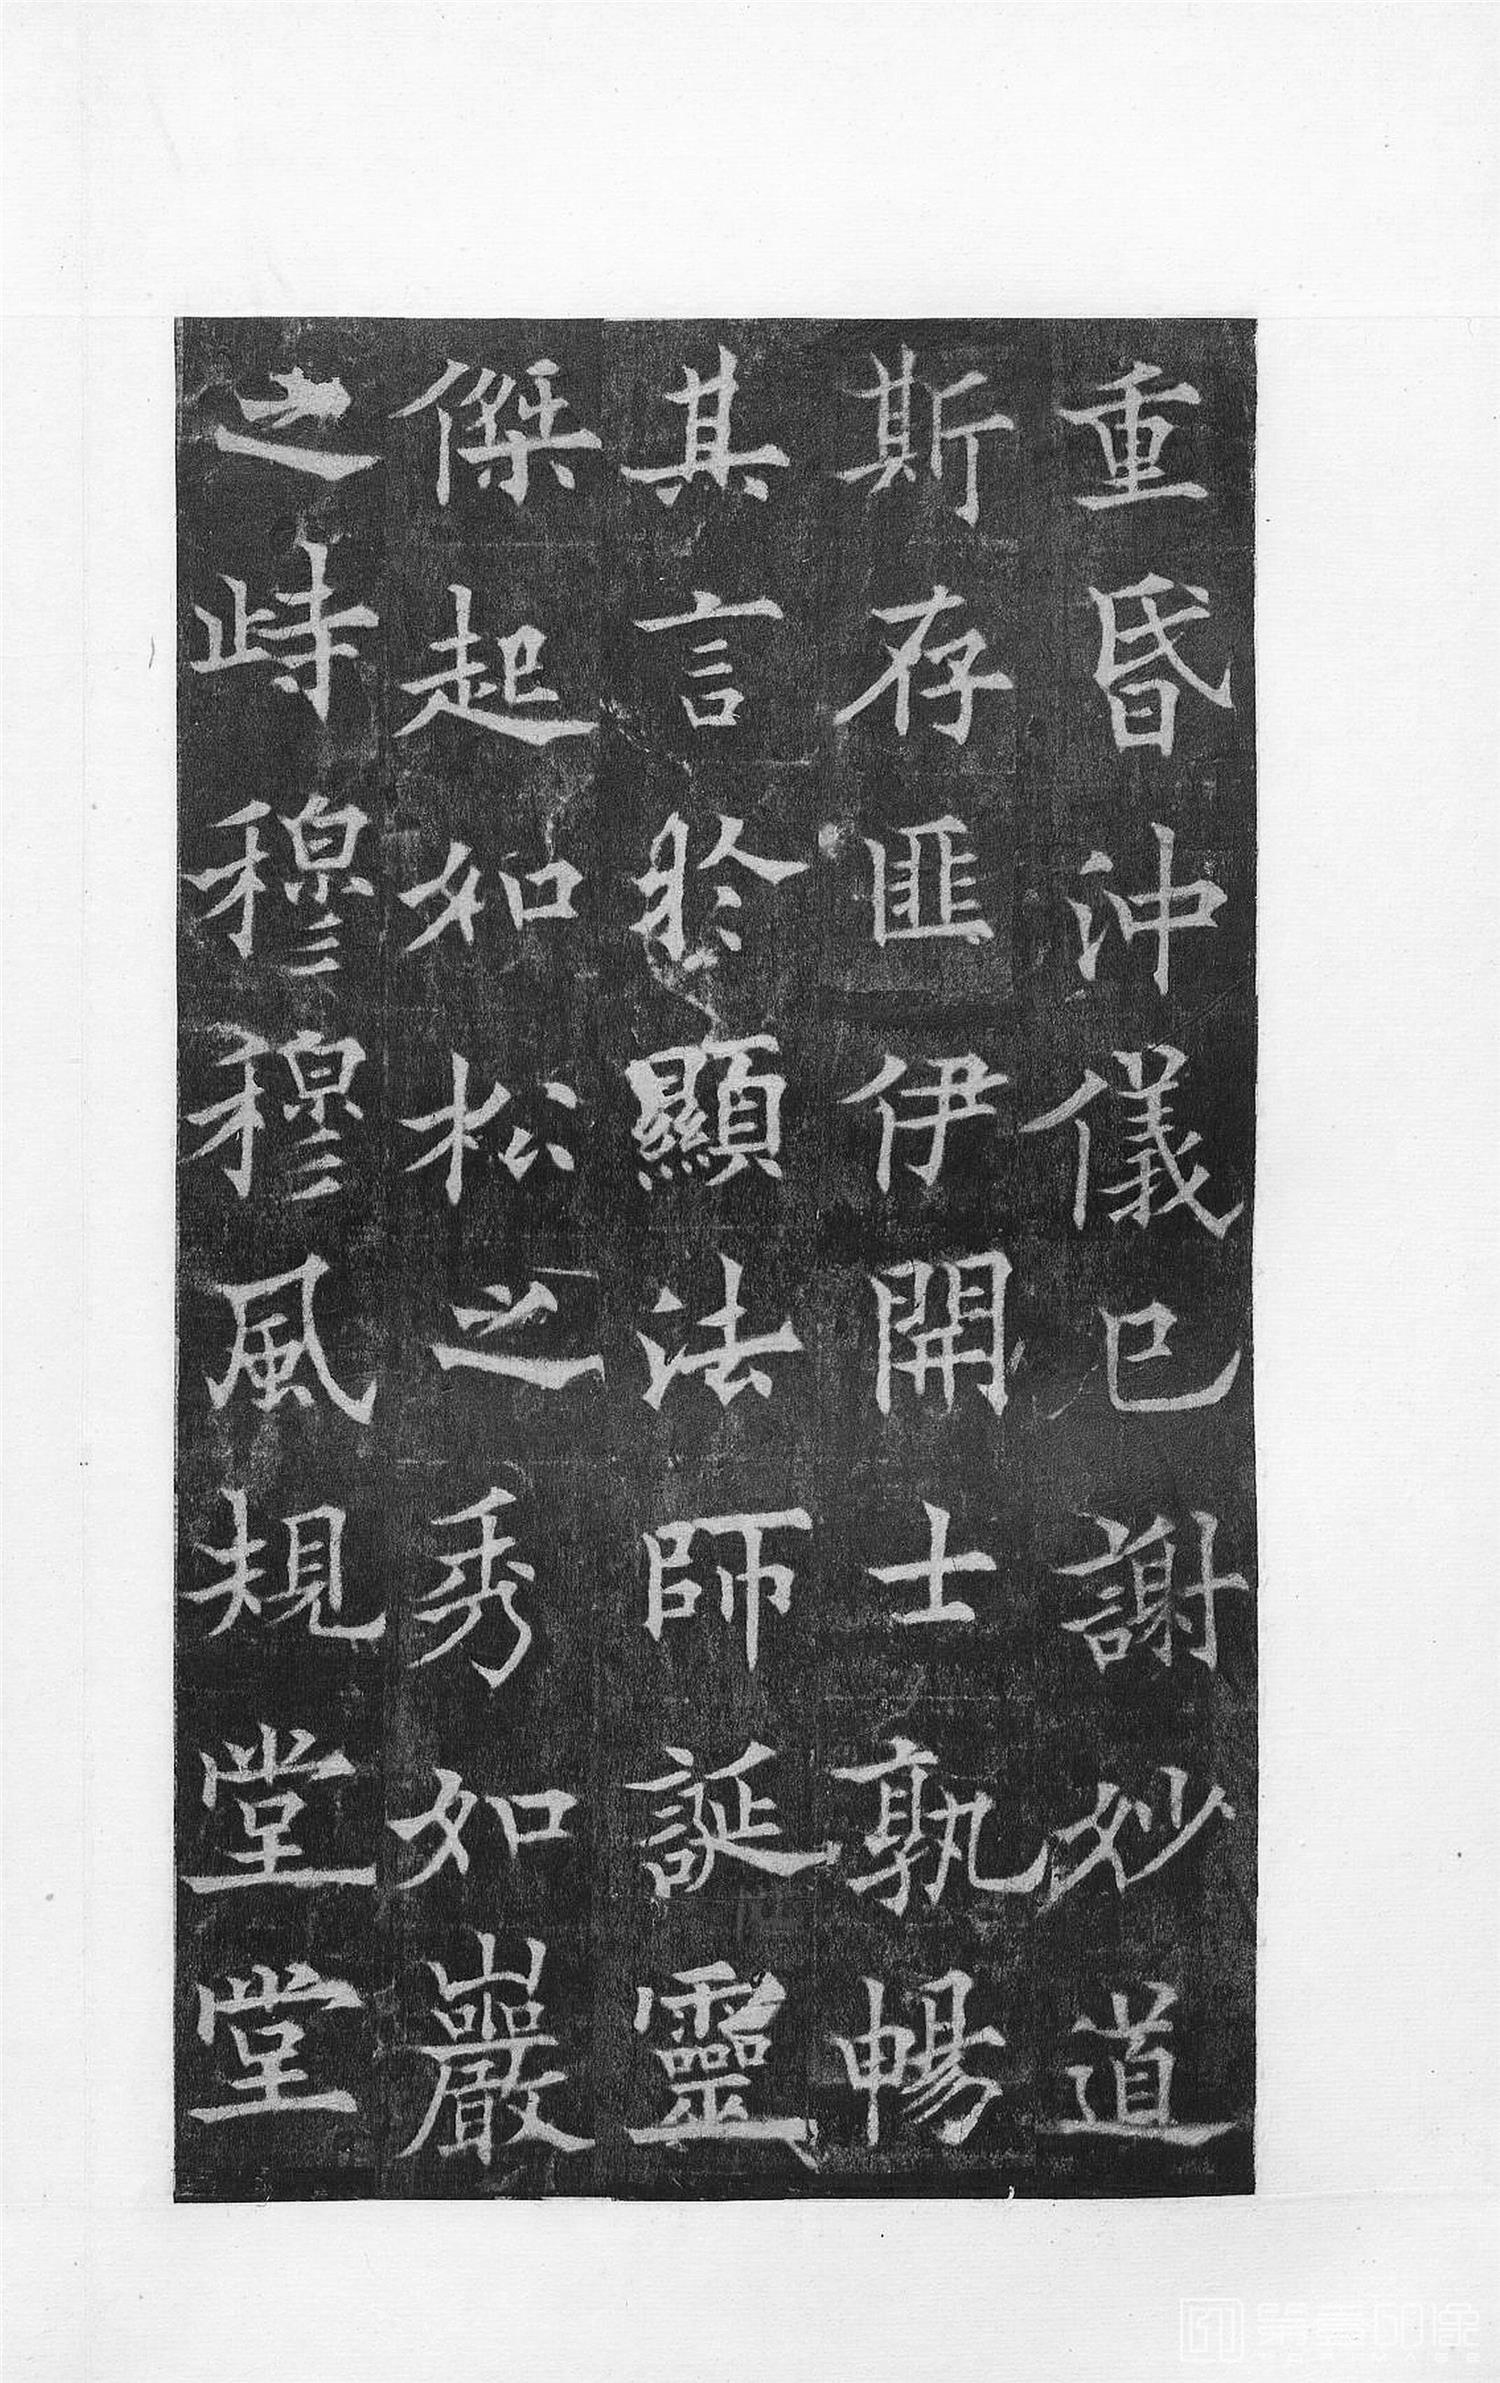 重昏沖儀已謝妙道
斯存匪伊開士孰暢
其言於顯法師誕靈
傑起如松之秀如巖
之峙穆穆風規堂堂